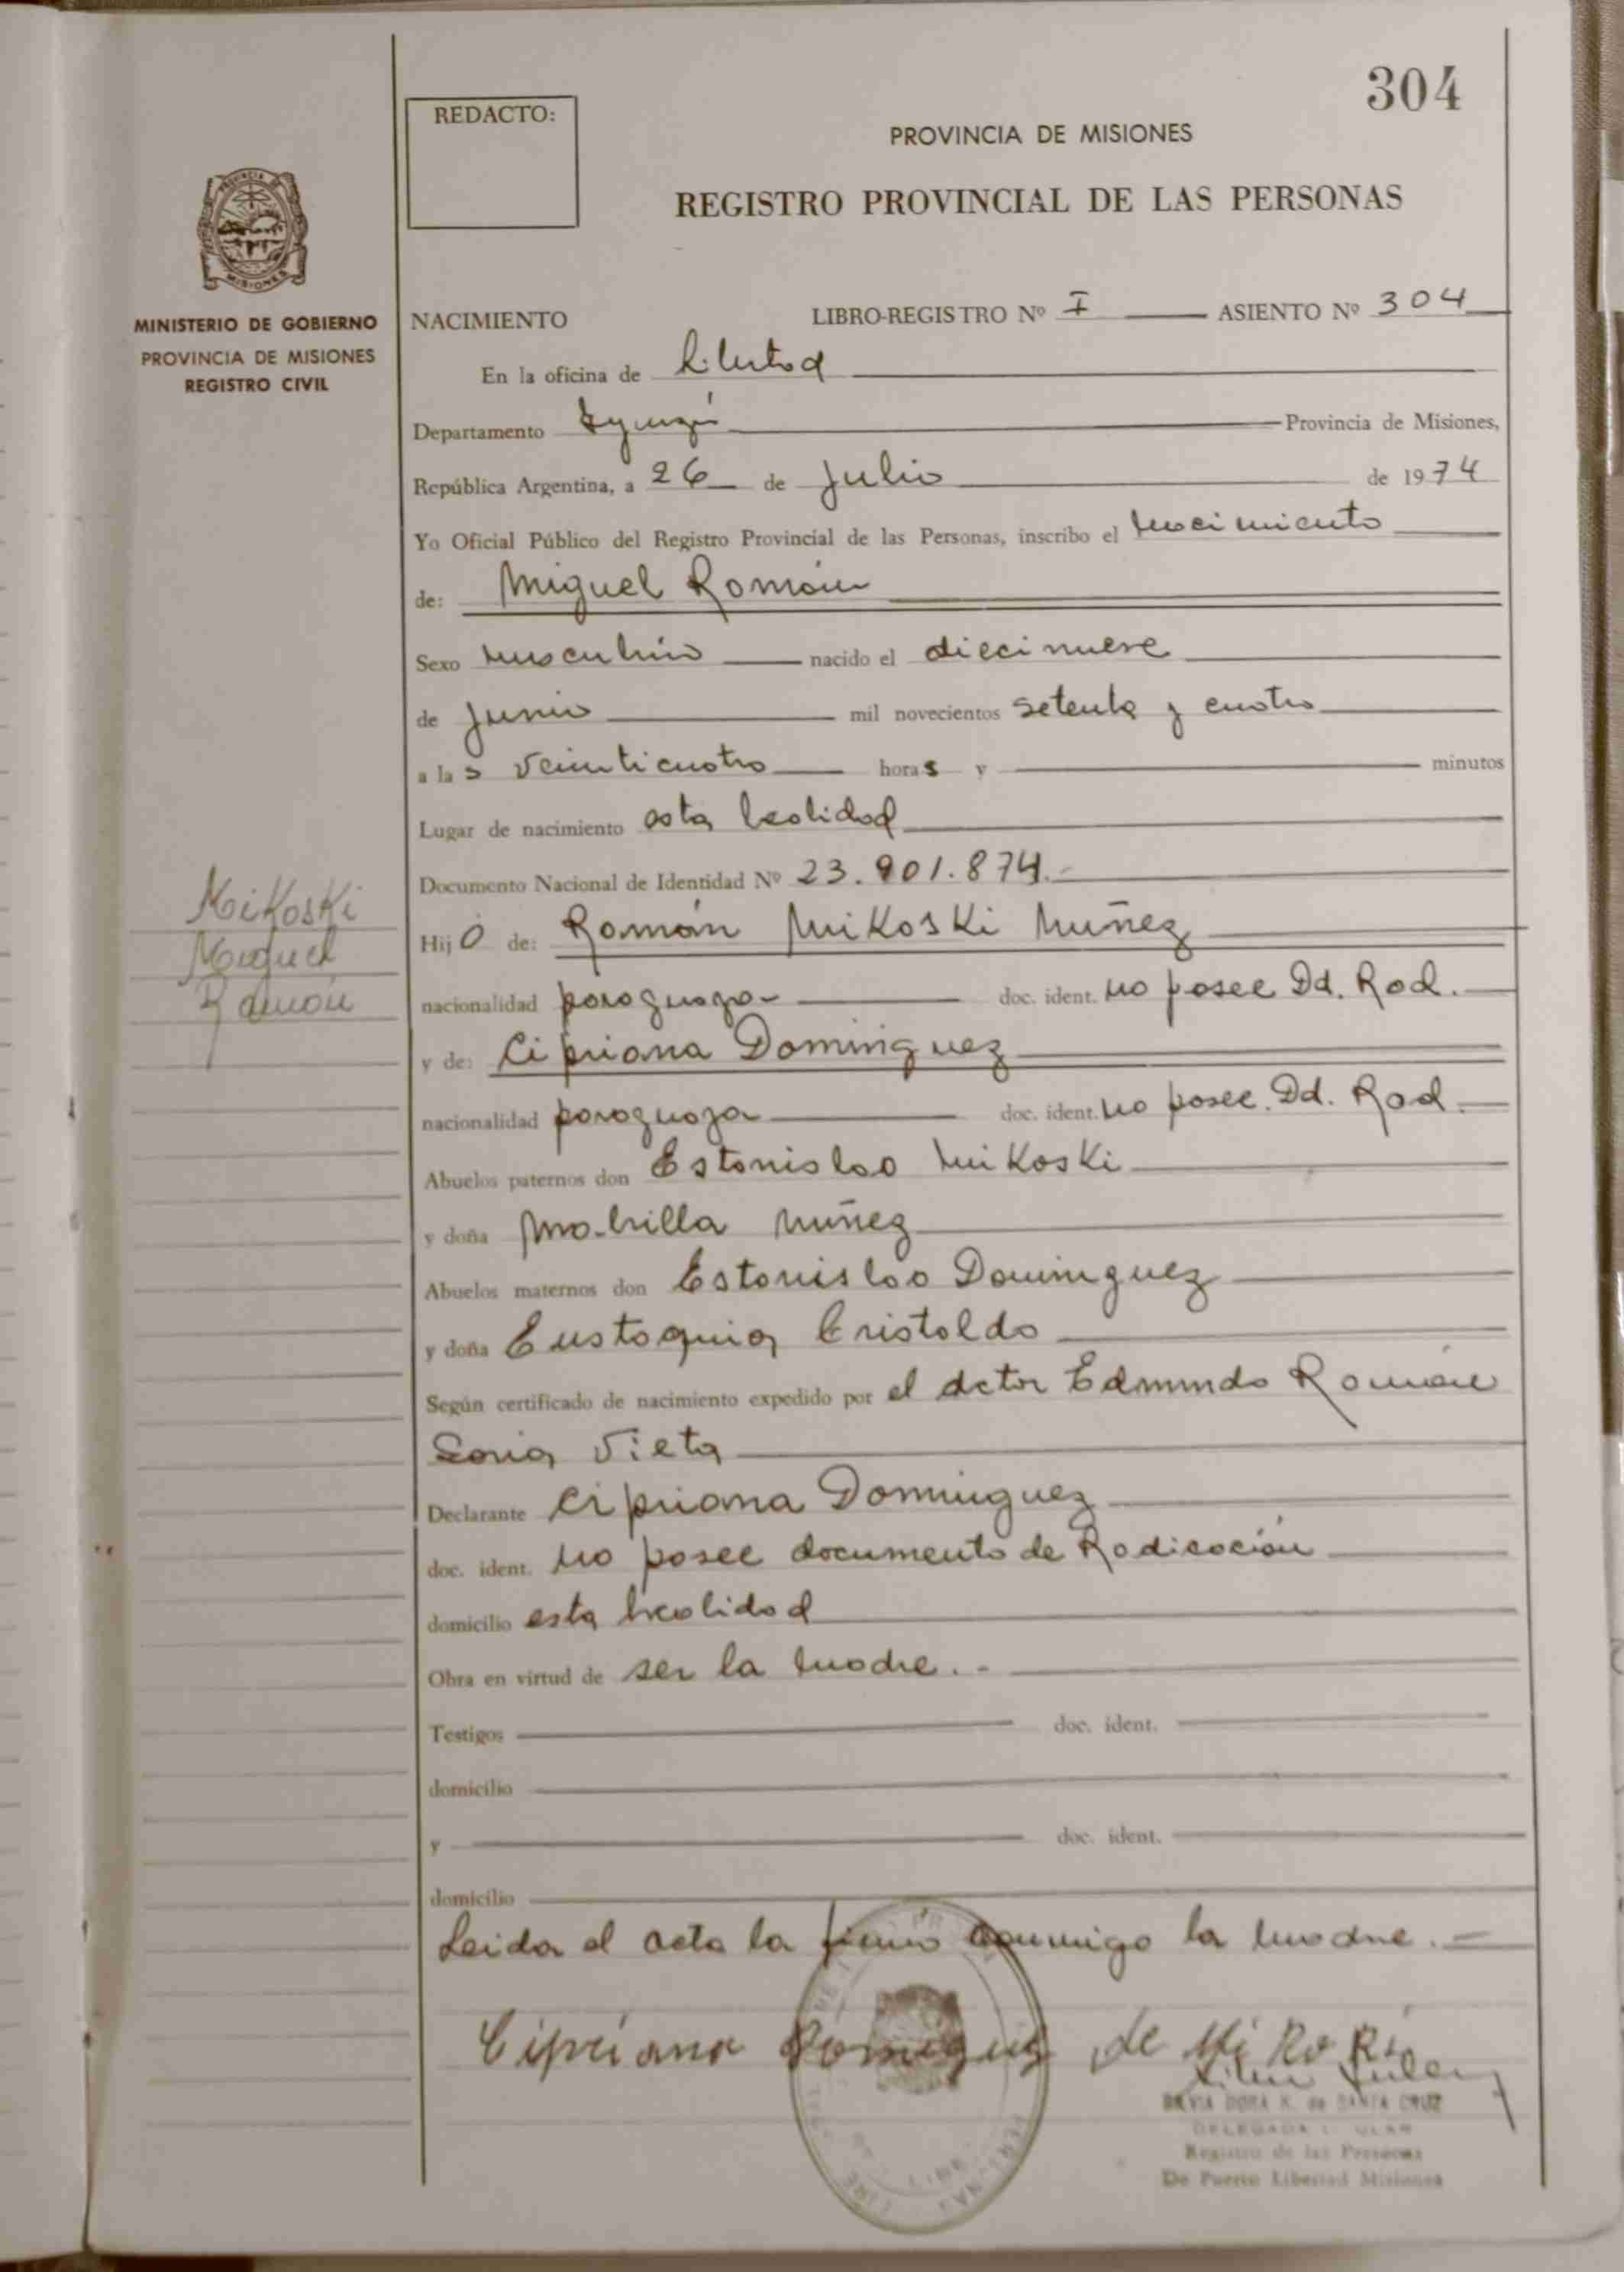 304
REDACTO:
PROVINCIA DE MISIONES
REGISTRO PROVINCIAL DE LAS PERSONAS
MISIONES
MINISTERIO DE GOBIERNO
PROVINCIA DE MISIONES
REGISTRO CIVIL
NACIMIENTO LIBRO-REGISTRO Nº I ASIENTO Nº 304
En la oficina de Libertad
Departamento Iguazú Provincia de Misiones,
República Argentina, a 26 de Julio de 1974
Yo Oficial Público del Registro Provincial de las Personas, inscribo el nacimiento
de: Miguel Román
Sexo masculino nacido el diecinueve
de Junio mil novecientos setenta y cuatro
a las veinticuatro horas y minutos
Lugar de nacimiento esta localidad
Documento Nacional de Identidad Nº 23.901.874.-
Hijo de: Román Mikoski Nuñez
nacionalidad paraguaya doc. ident. no posee Dd. Rad.
y de: Cipriana Dominguez
nacionalidad paraguaya doc. ident. no posee. Dd. Rad.
Abuelos paternos don Estanislao Mikoski
y doña Nuñez
Abuelos maternos don Estanislao Dominguez
y doña Eustaquia Cristaldo
Según certificado de nacimiento expedido por el dctor Edmundo Román
Soria Vieta
Declarante Cipriana Dominguez
doc. ident. no posee documento de Radicación
domicilio esta localidad
Obra en virtud de ser la madre.-
Testigos doc. ident.
domicilio
y doc. ident.
domicilio
Leida el acta la firmó conmigo la madre.-
Cipriana de
DORA K. de SANTA CRUZ
DELEGADA
Registro de las Personas
De Puerto Libertad Misiones
Mikoski
Miguel
Ramón